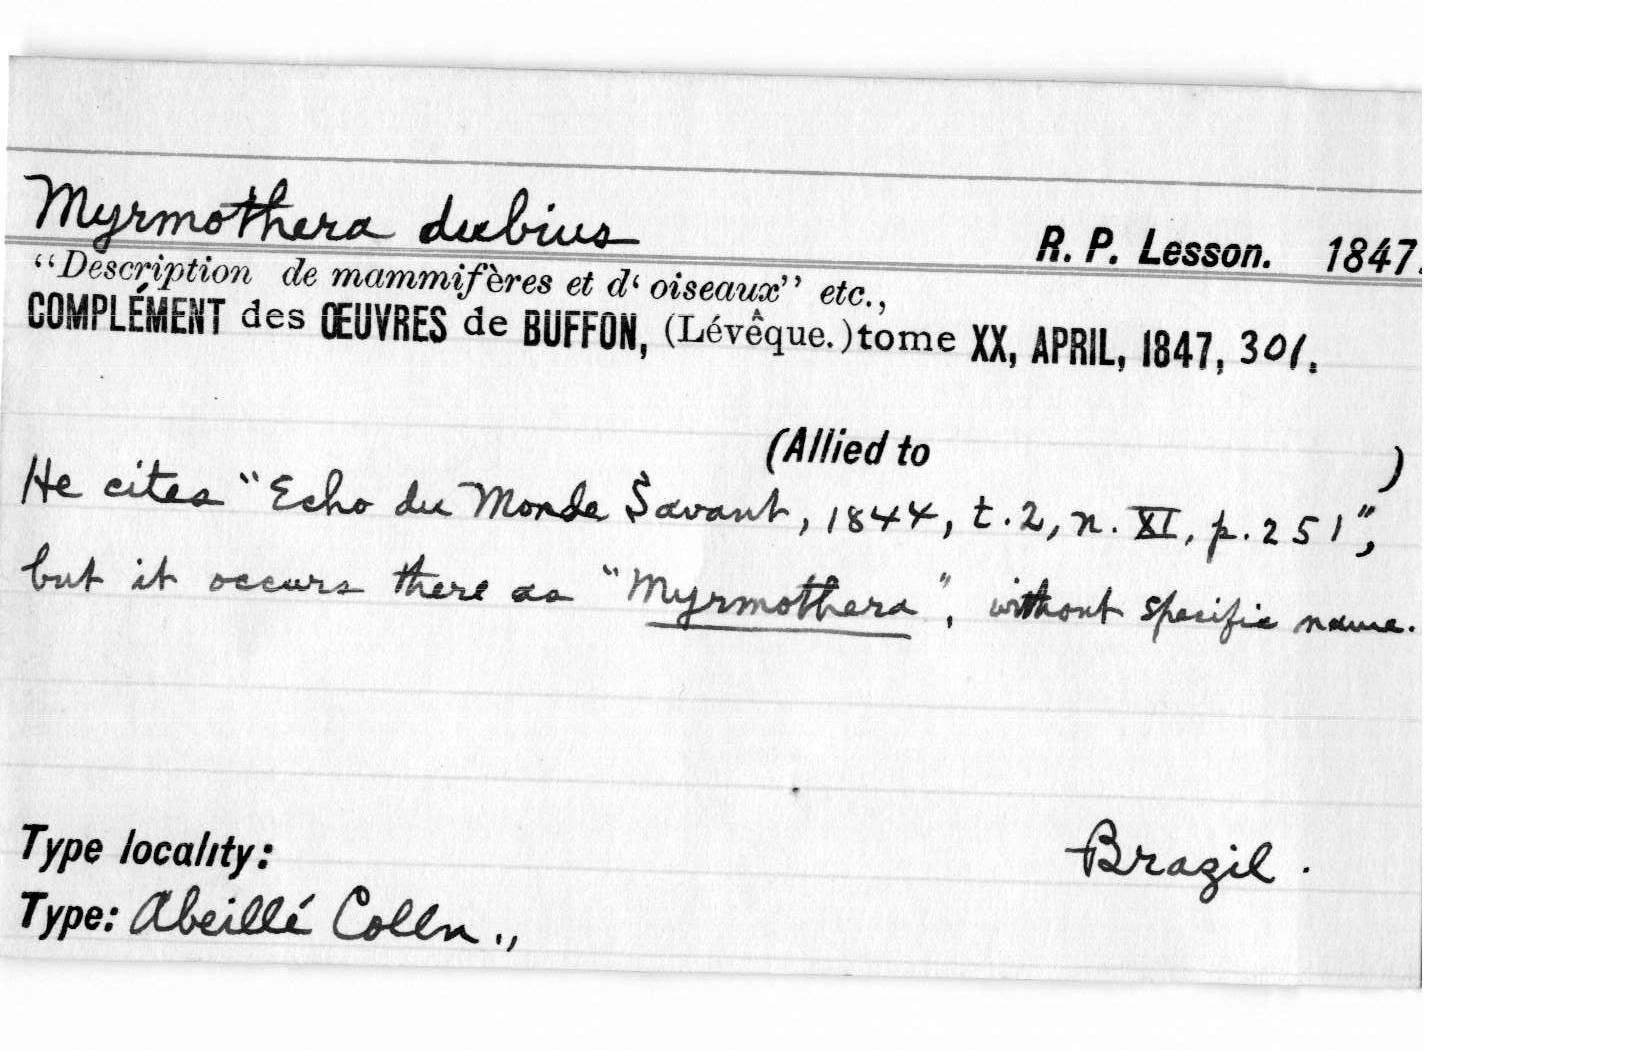 Myrmothera dubius
R. P. Lesson. 1847.
“Description de mammifères et d‘ oiseaux” etc.,
COMPLÉMENT des ŒUVRES de BUFFON, (Lévêque.) tome XX, APRIL, 1847, 301.
(Allied to )
He cites "Echo du Monde Savant, 1844, t.2, n. XI, p.251",
but it occurs there as "Myrmothera", without specific name.
Type locality: Brazil.
Type: Abeillé Colln.,